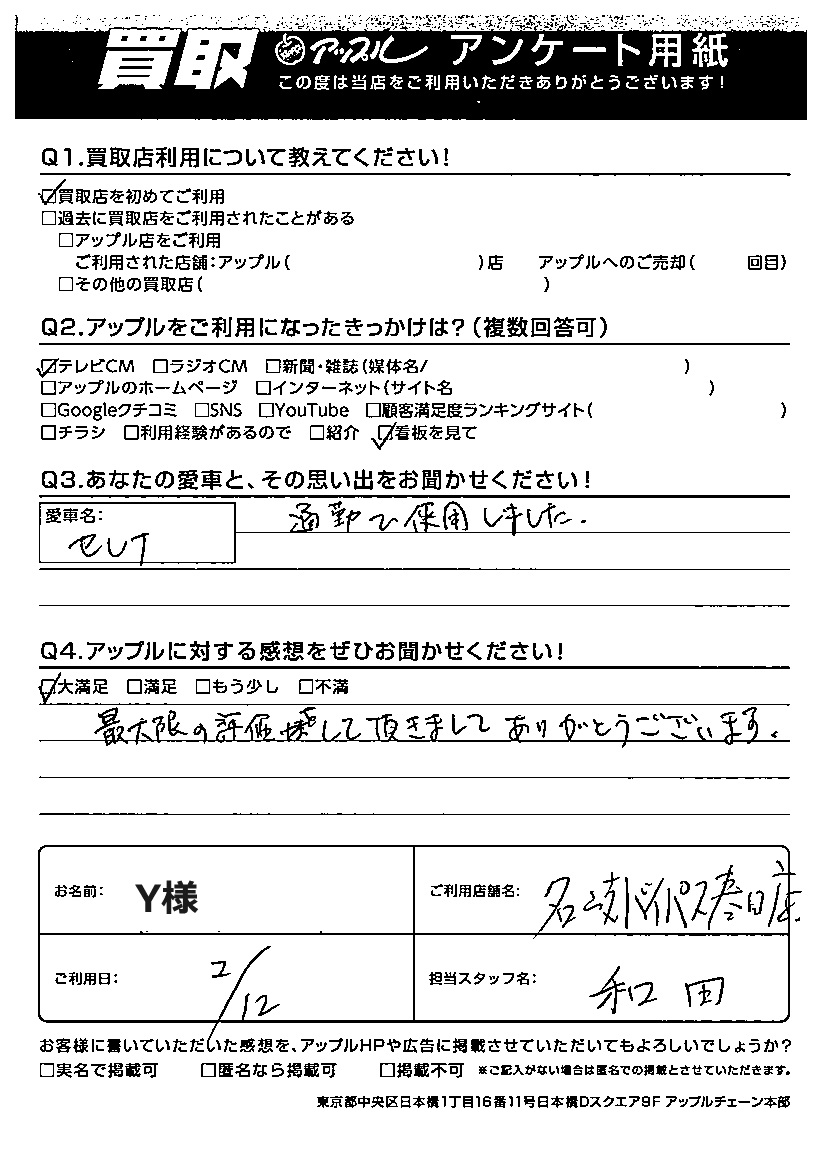 買取 アップル アンケート用紙
この度は当店をご利用いただきありがとうございます!
Q1.買取店利用について教えてください!
☑買取店を初めてご利用
□過去に買取店をご利用されたことがある
□アップル店をご利用
ご利用された店舗:アップル( )店 アップルへのご売却( 回目)
□その他の買取店( )
Q2.アップルをご利用になったきっかけは?(複数回答可)
☑テレビCM □ラジオCM □新聞・雑誌(媒体名/ )
□アップルのホームページ □インターネット(サイト名 )
□Googleクチコミ □SNS □YouTube □顧客満足度ランキングサイト( )
□チラシ □利用経験があるので □紹介 ☑看板を見て
Q3.あなたの愛車と、その思い出をお聞かせください!
愛車名: 通勤で使用しました.
セレナ
Q4.アップルに対する感想をぜひお聞かせください!
☑大満足 □満足 □もう少し □不満
最大限の評価 して頂きましてありがとうございます.
お名前: Y様 ご利用店舗名: 名岐バイパス春日店
ご利用日: 2/12 担当スタッフ名: 和田
お客様に書いていただいた感想を、アップルHPや広告に掲載させていただいてもよろしいでしょうか?
□実名で掲載可 □匿名なら掲載可 □掲載不可 ※ご記入がない場合は匿名での掲載とさせていただきます。
東京都中央区日本橋1丁目16番11号日本橋Dスクエア9F アップルチェーン本部